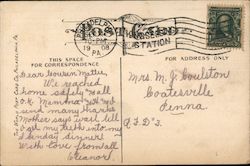 PHILADELPHIA
1908
PA
POST CARD
STATION
THIS SPACE
FOR CORRESPONDENCE
FOR ADDRESS ONLY
Dear Cousin Mattie,
We reached
home safely. all
O.K. Mamma & all
send many thanks
Mother says wait till
I get my teeth into my
Sunday dinner
With love from all
Eleanor.
Mrs M. J. Coulston
Coatesville
Penna.
R.F.D. 3.